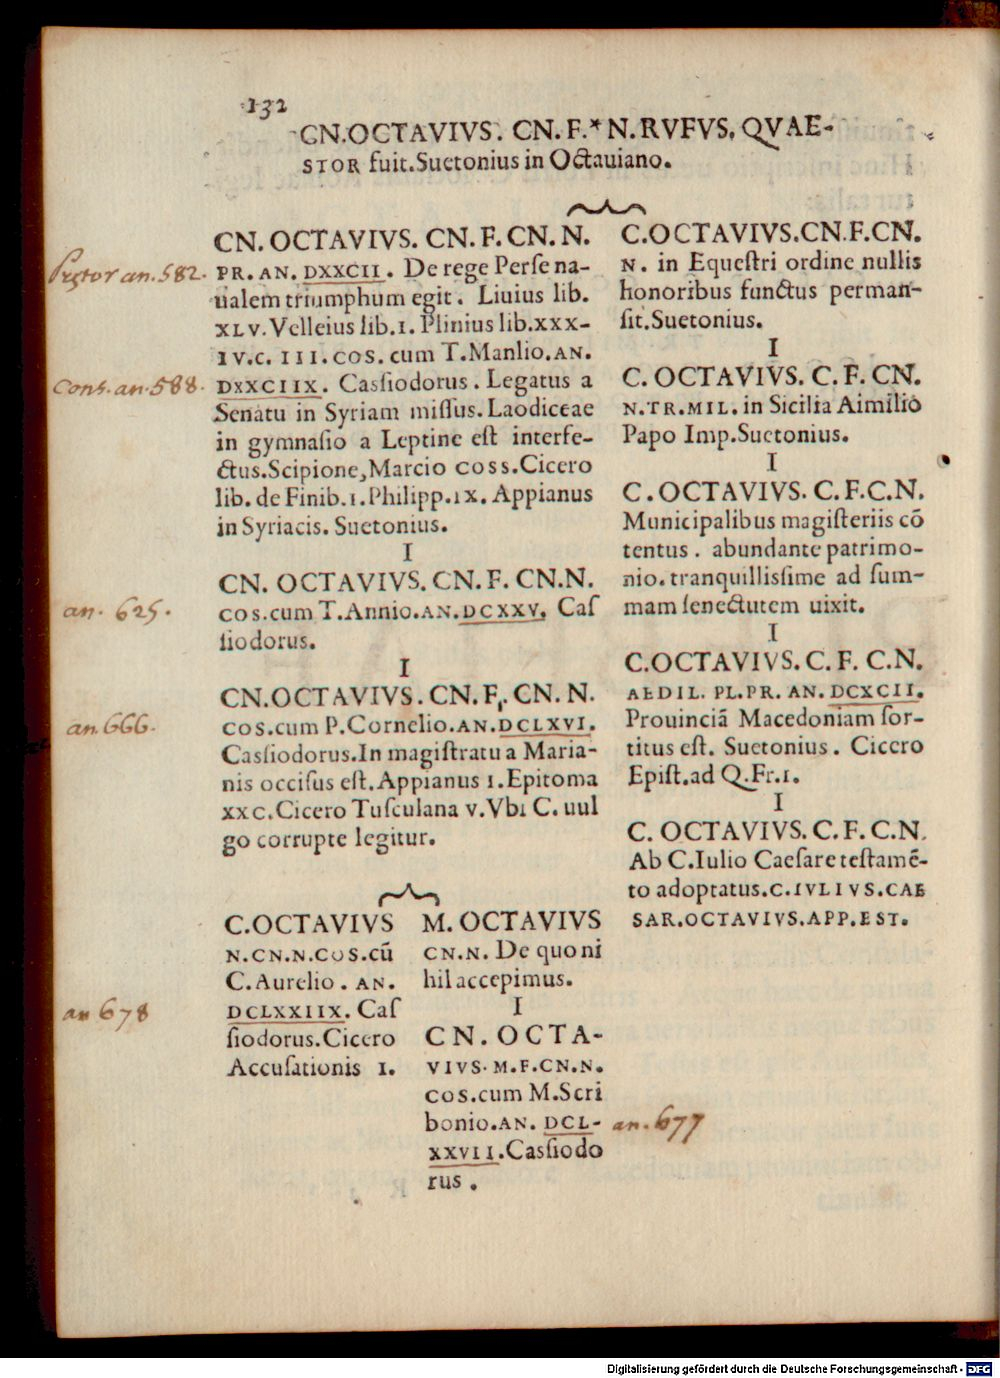 132
CN.OCTAVIVS. CN. F.*N. RVFVS, QVAE-
STOR fuit.Suetonius in Octauiano.
CN. OCTAVIVS. CN. F. CN. N.
Prętor an. 582.
PR. AN. DXXCII. De rege Perse na-
ualem triumphum egit. Liuius lib.
XLV. Velleius lib.I. Plinius lib.XXX-
IV.c. III.COS. cum T.Manlio.AN.
Cons. an. 588.
DXXCIIX. Cassiodorus. Legatus a
Senatu in Syriam missus. Laodiceae
in gymnasio a Leptine est interfe-
ctus.Scipione,Marcio COSS.Cicero
lib. de Finib.I.Philipp.IX. Appianus
in Syriacis. Suetonius.
I
CN. OCTAVIVS. CN. F. CN.N.
an. 625.
COS.cum T.Annio.AN.DCXXV. Cas
siodorus.
I
CN.OCTAVIVS. CN. F. CN. N.
an. 666.
COS.cum P.Cornelio.AN.DCLXVI.
Cassiodorus.In magistratu a Maria-
nis occisus est.Appianus I.Epitoma
XXC.Cicero Tusculana V.Vbi C. uul
go corrupte legitur.
C.OCTAVIVS
N.CN.N.COS.cū
C.Aurelio. AN.
an 678
DCLXXIIX. Cas
siodorus.Cicero
Accusationis I.
M. OCTAVIVS
CN.N. De quo ni
hil accepimus.
I
CN. OCTA-
VIVS.M.F.CN.N.
COS.cum M.Scri
bonio.AN. DCL-
an. 677
XXVII.Cassiodo
rus.
C.OCTAVIVS.CN.F.CN.
N. in Equestri ordine nullis
honoribus functus perman-
sit.Suetonius.
I
C. OCTAVIVS. C. F. CN.
N.TR.MIL. in Sicilia Aimilio
Papo Imp.Suetonius.
I
C. OCTAVIVS. C. F. C. N.
Municipalibus magisteriis cō
tentus. abundante patrimo-
nio. tranquillissime ad sum-
mam senectutem uixit.
I
C.OCTAVIVS. C. F. C.N.
AEDIL. PL.PR. AN. DCXCII.
Prouinciā Macedoniam sor-
titus est. Suetonius. Cicero
Epist.ad Q.Fr.I.
I
C. OCTAVIVS. C. F. C.N.
Ab C.Iulio Caesare testamē-
to adoptatus.C.IVLIVS.CAE
SAR.OCTAVIVS.APP.EST.
Digitalisierung gefördert durch die Deutsche Forschungsgemeinschaft - DFG